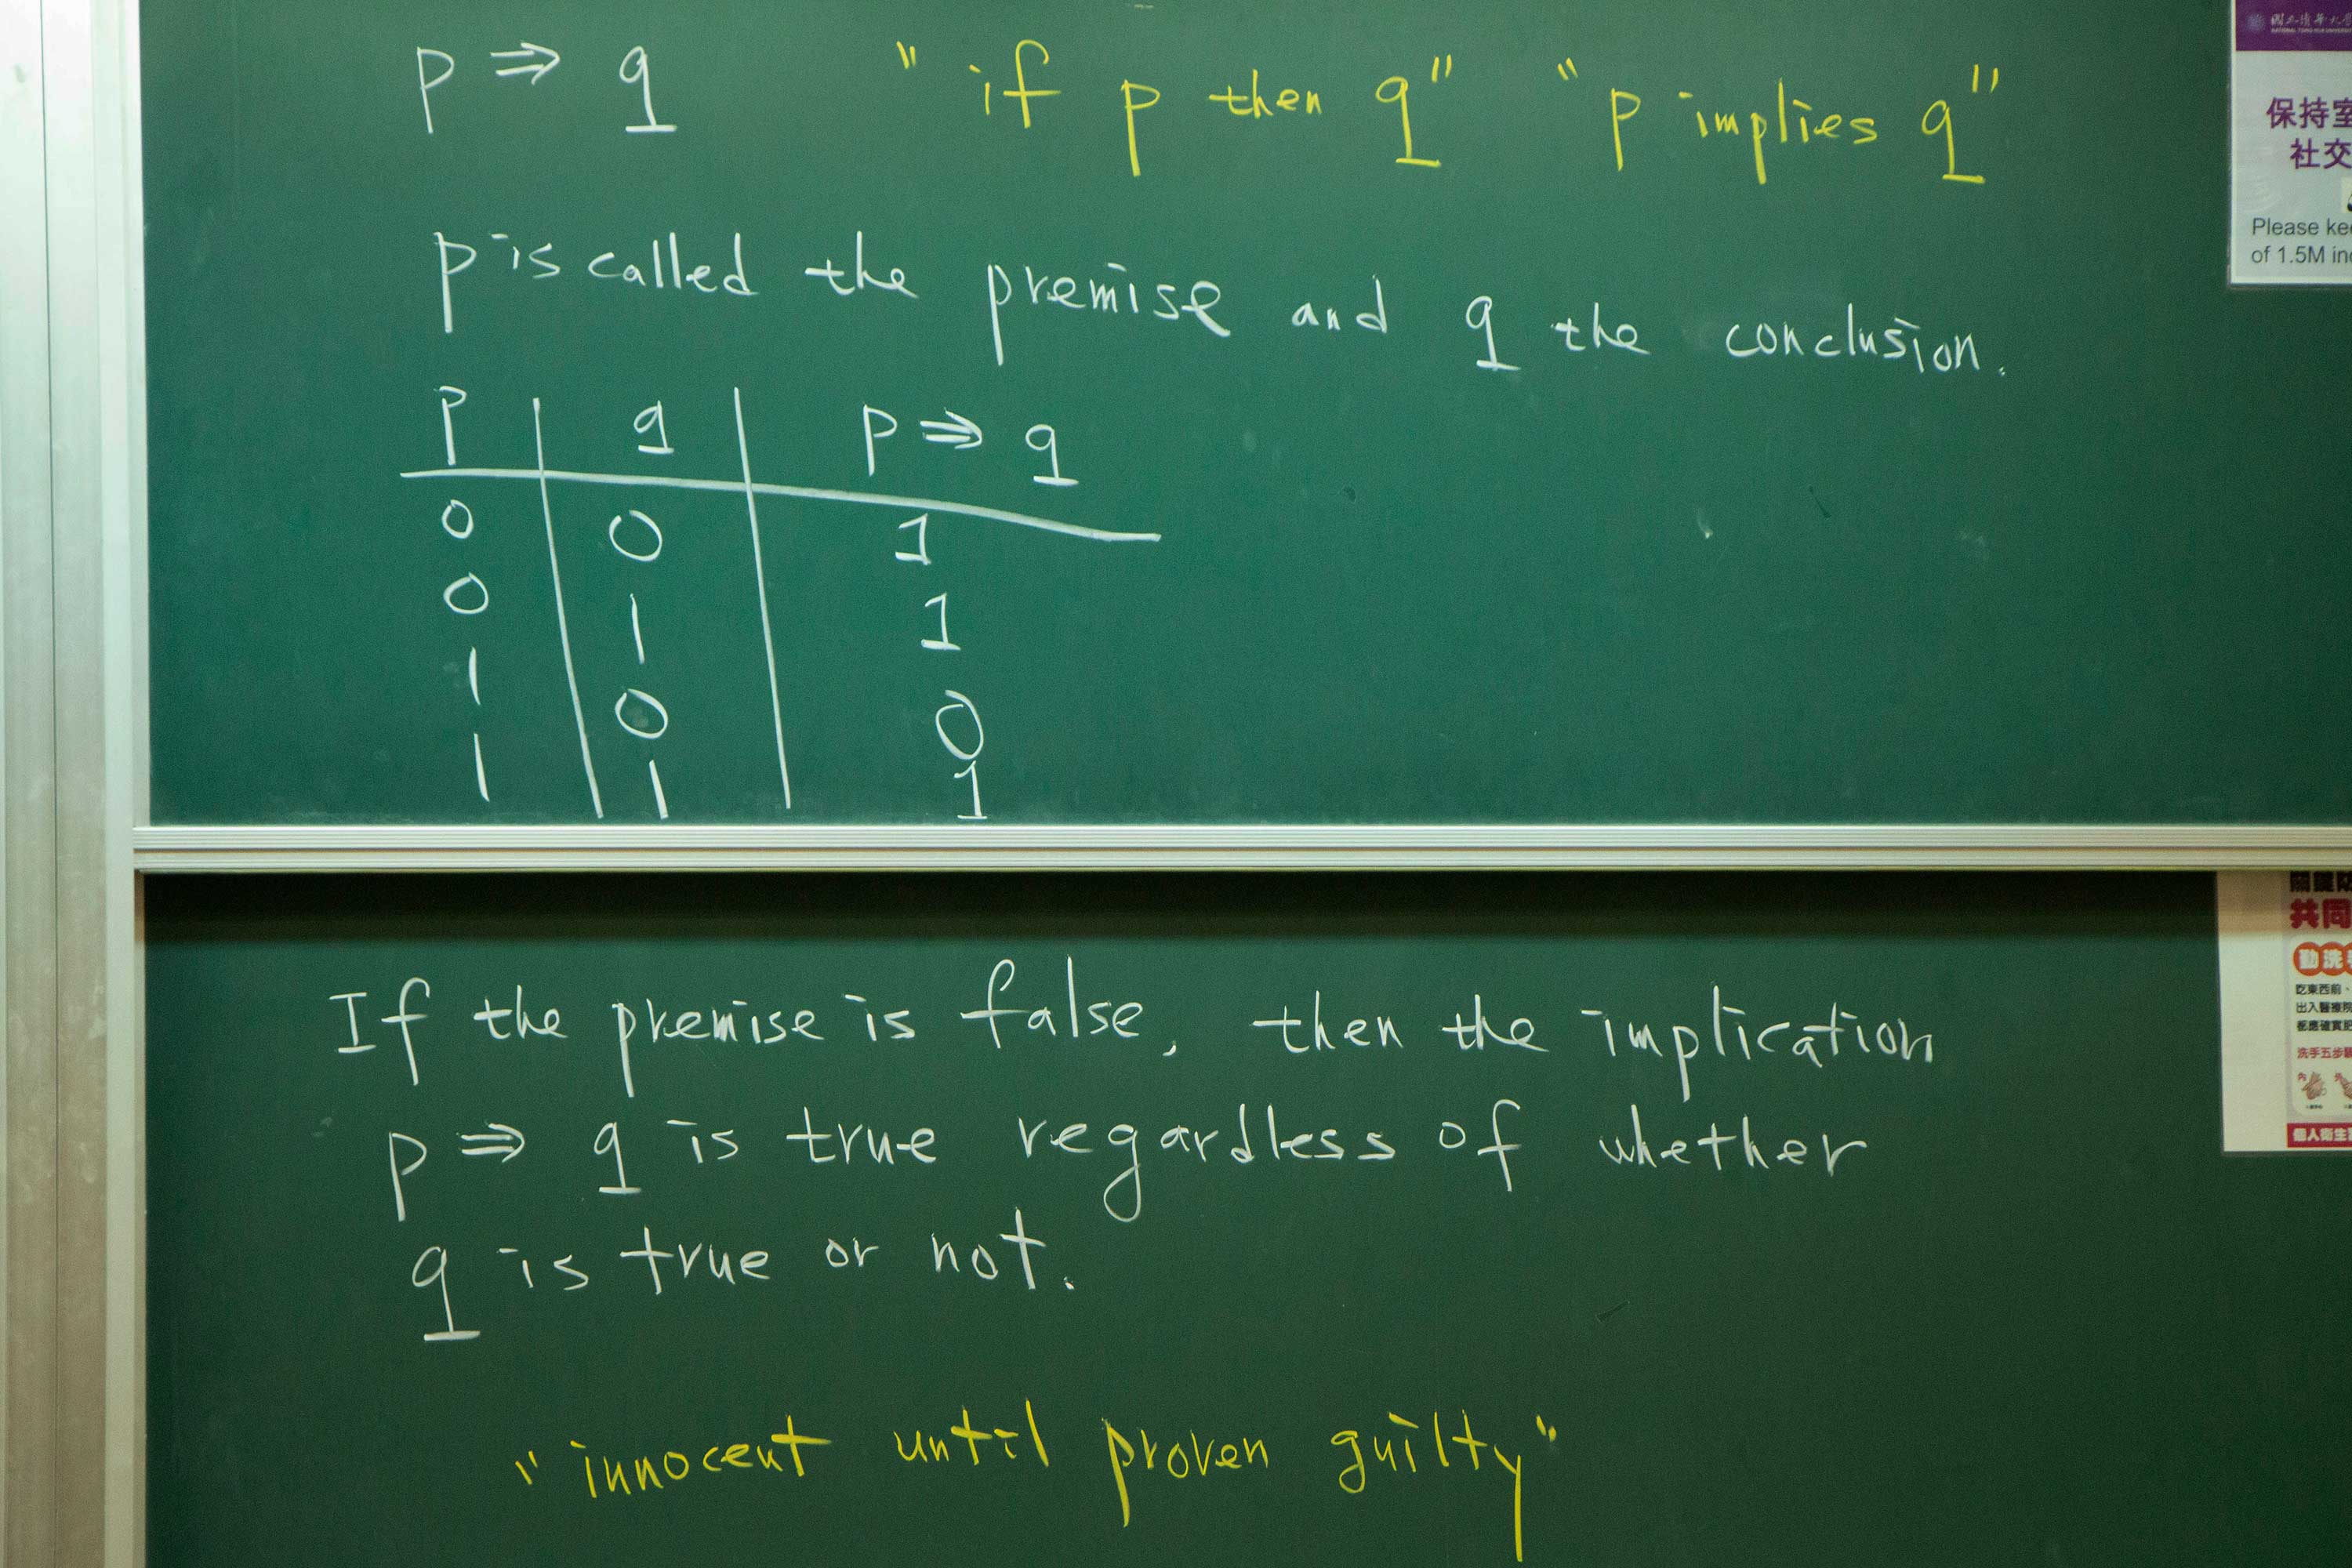 p ⇒ q "if p then q" "p implies q"
p is called the premise and q the conclusion.
p q p ⇒ q
0 0 1
0 1 1
1 0 0
1 1 1
If the premise is false, then the implication
p ⇒ q is true regardless of whether
q is true or not.
"innocent until proven guilty"
保持室
社交
Please kee
of 1.5M ind
共同
勤洗
吃東西前、
出入醫療院
都應確實把
洗手五步驟
內
個人衛生